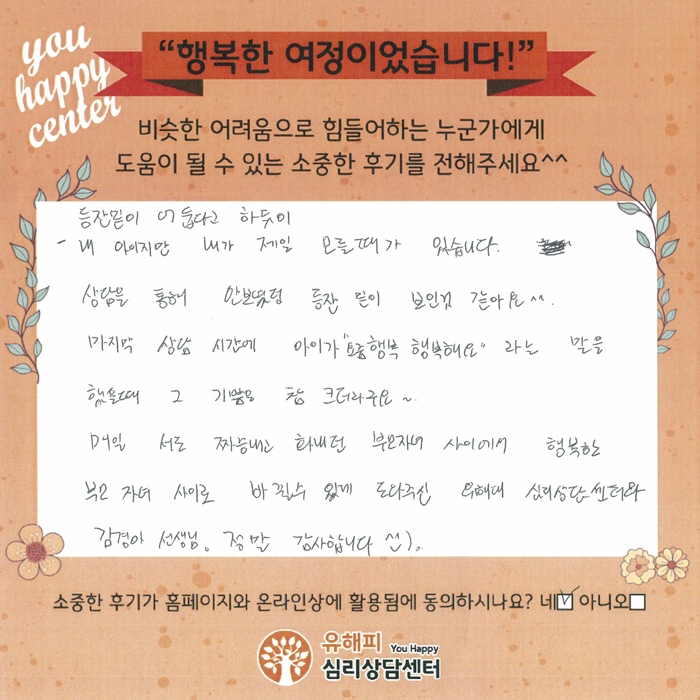 you
happy
center
“행복한 여정이었습니다!”
비슷한 어려움으로 힘들어하는 누군가에게
도움이 될 수 있는 소중한 후기를 전해주세요^^
등잔밑이 어둡다고 하듯이
내 아이지만 내가 제일 모를때가 있습니다.
상담을 통해 안보였던 등잔 밑이 보인것 같아요^^.
마지막 상담 시간에 아이가 "요즘행복 행복해요" 라는 말을
했을때 그 기쁨은 참 크더라구요~.
매일 서로 짜증내고 화내던 부모자녀 사이에서 행복한
부모 자녀 사이로 바뀔수 있게 도와주신 유해피 심리상담센터와
김경아 선생님. 정말 감사합니다
소중한 후기가 홈페이지와 온라인상에 활용됨에 동의하시나요? 네 아니오
유해피 You Happy
심리상담센터